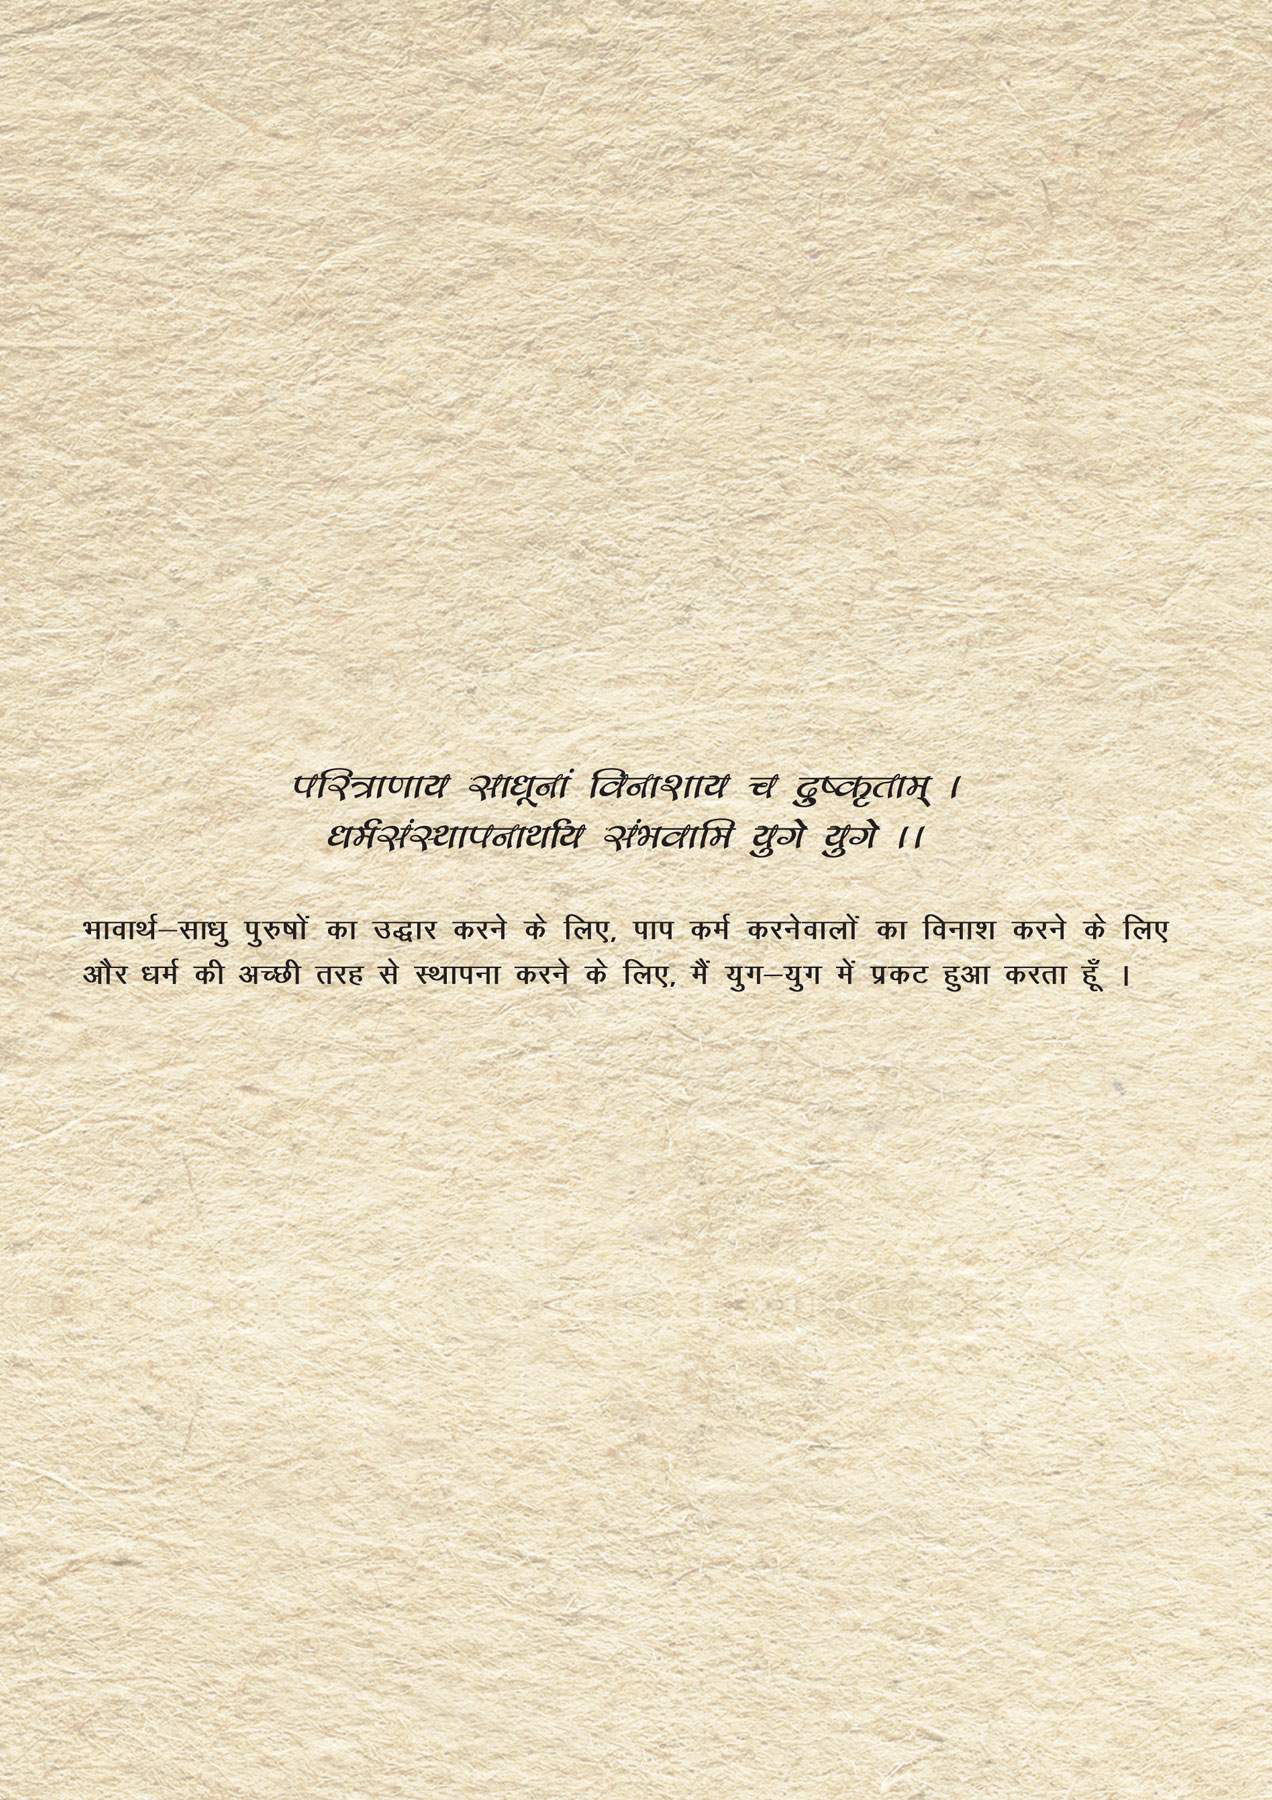 परित्राणाय साधूनां विनाशाय च दुष्कृताम् ।
धर्मसंस्थापनार्थाय संभवामि युगे युगे ।।
भावार्थ–साधु पुरुषों का उद्धार करने के लिए, पाप कर्म करनेवालों का विनाश करने के लिए
और धर्म की अच्छी तरह से स्थापना करने के लिए, मैं युग–युग में प्रकट हुआ करता हूँ ।